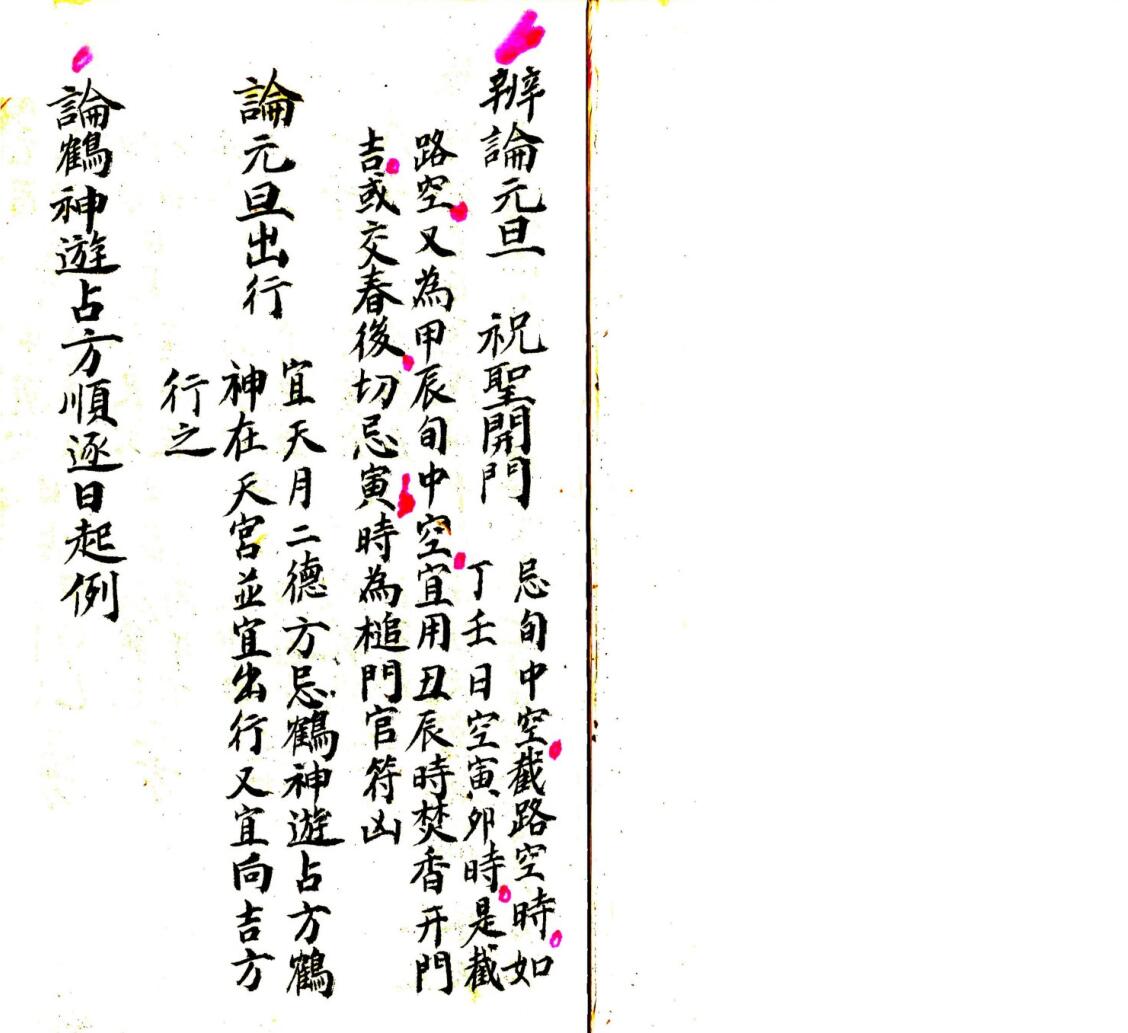 辨論元旦　祝聖開門
忌旬中空截路空時如
丁壬日空寅夘時是截
路空又為甲辰旬中空宜用丑辰時焚香开門
吉或交春後切忌寅時為槌門官符凶
論元旦出行
宜天月二德方忌鶴神遊占方鶴
神在天宮並宜出行又宜向吉方
行之
論鶴神遊占方順逐日起例